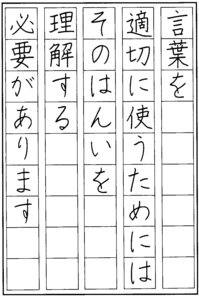 言葉を
適切に使うためには
そのはんいを
理解する
必要があります